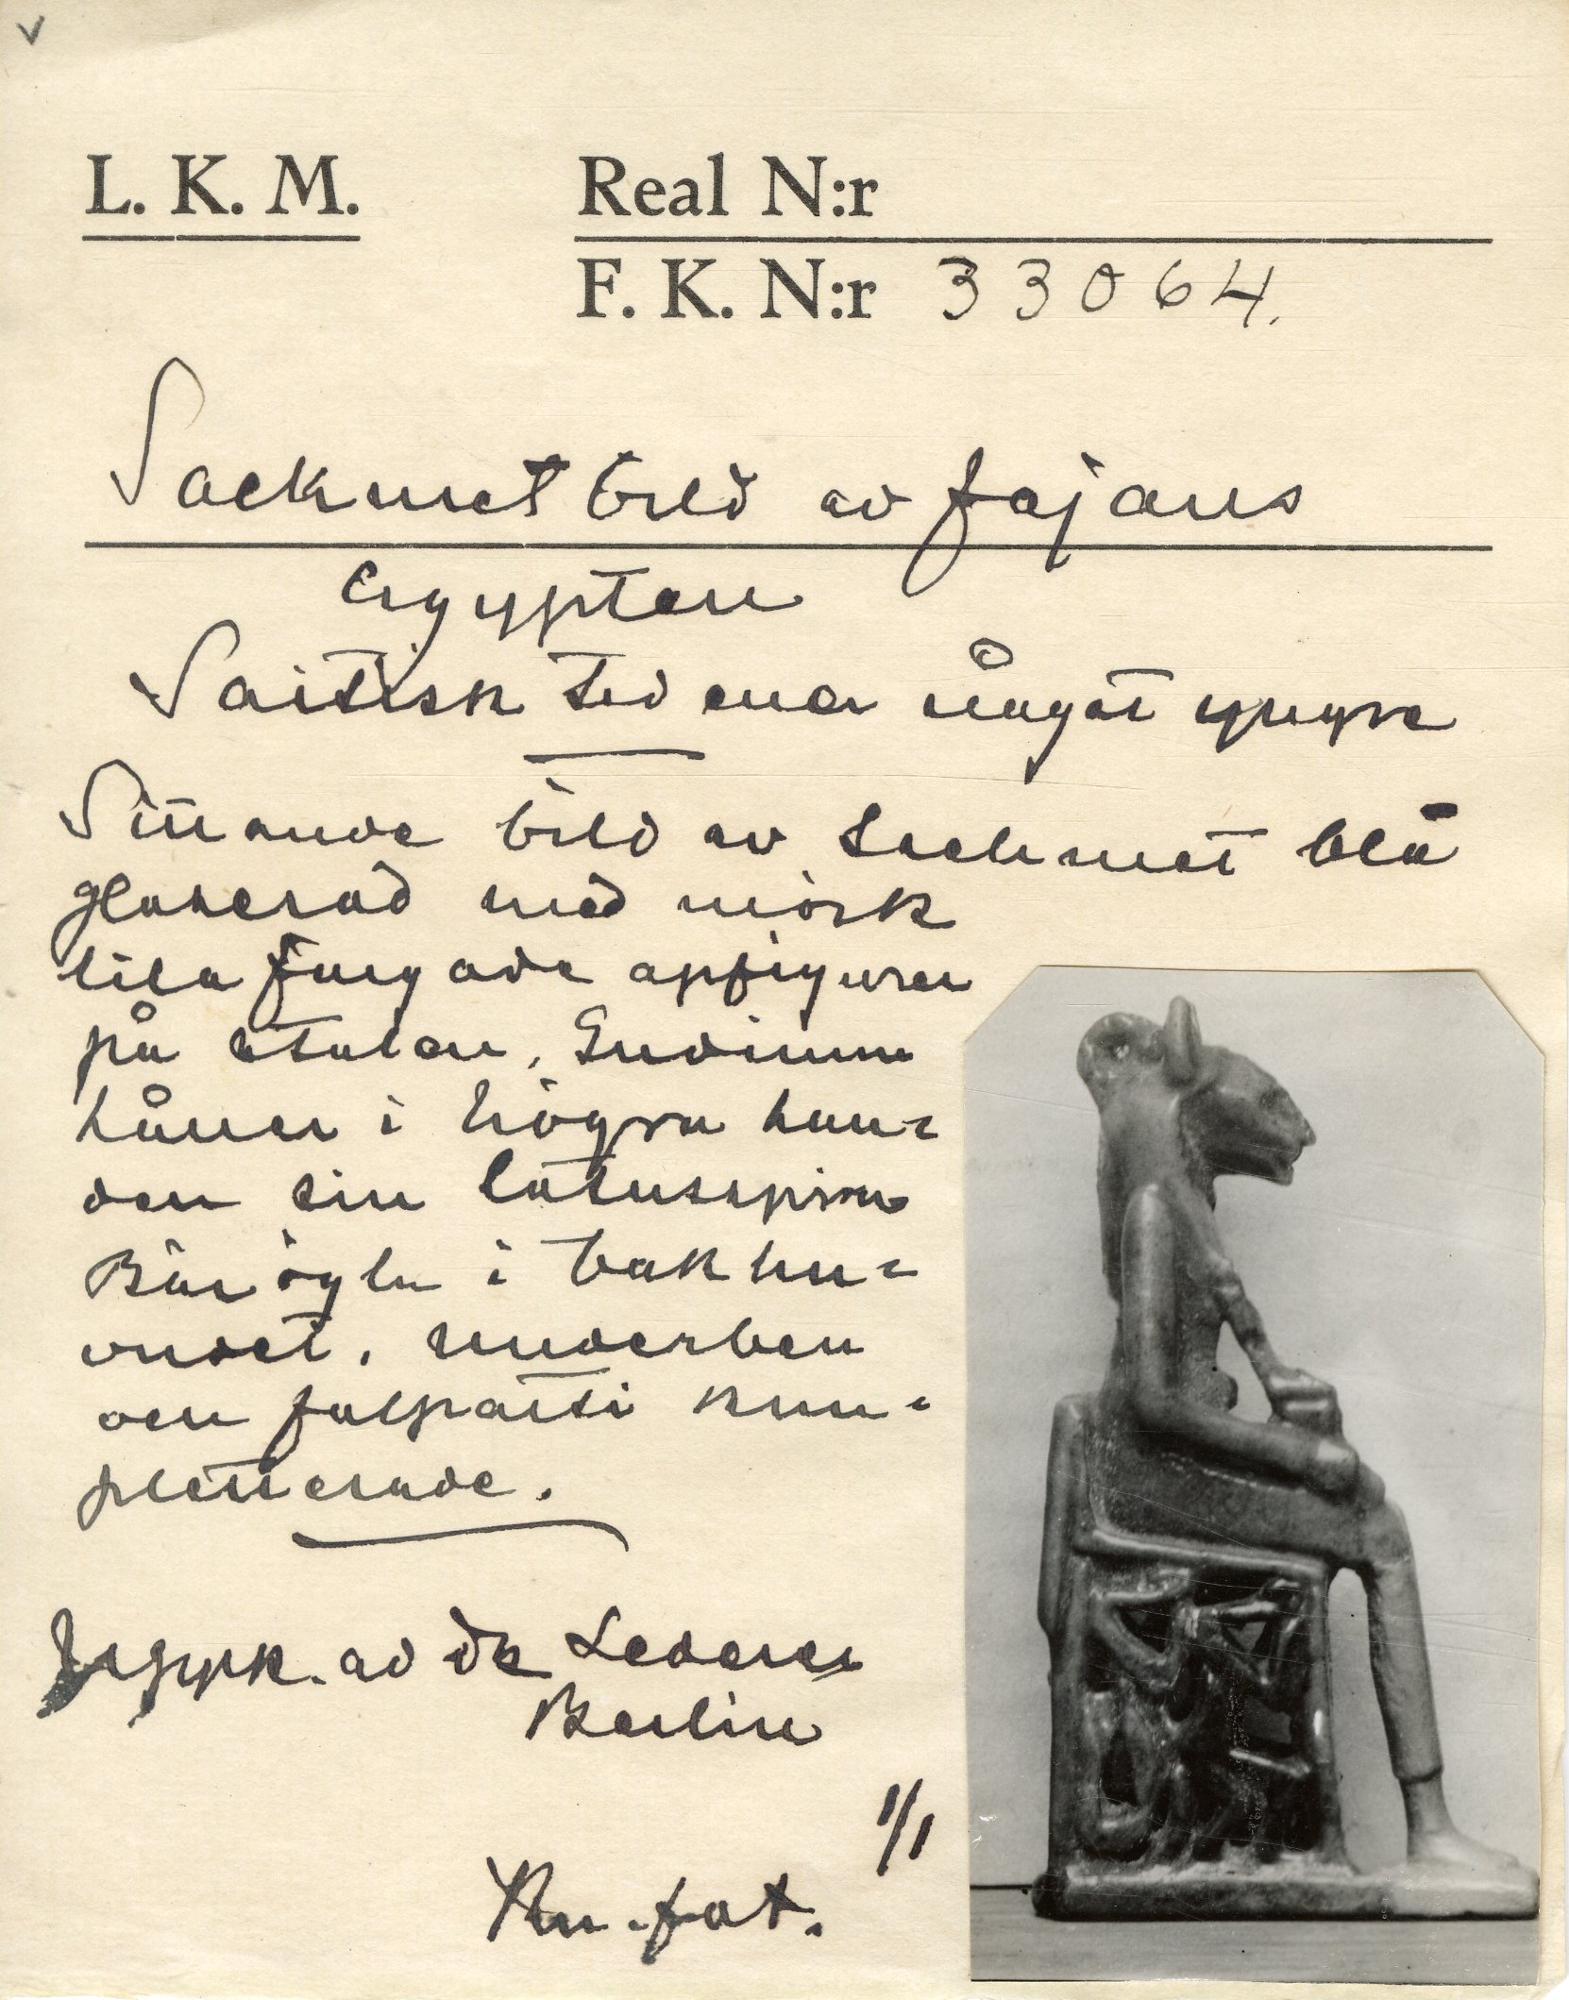 L. K. M.
Real N:r
F. K. N:r 33064.
Sackmet bild av fajans
Egypten
Saitisk tid eller något yngre
Sittande bild av Sachmet blå
glaserad med mörk
lila färgade apfigurer
på stolen. Gudinnan
håller i högra han=
den sin lotusspira
Bärögla i bakhu=
vudet. Underben
och fotparti kom=
pletterade.
av dr Lederer
Berlin
1/1
fot.